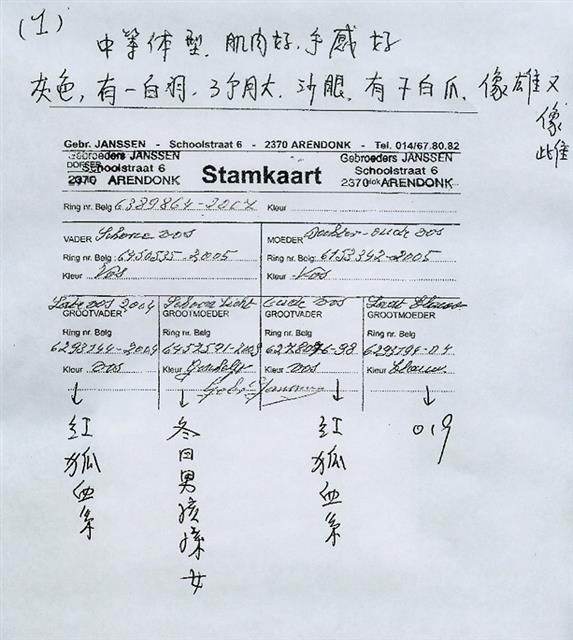 (1)
中等体型、肌肉好、手感好
灰色,有一白羽、3个月大、沙眼、有7白爪、像雄又像雌
Gebr. JANSSEN - Schoolstraat 6 - 2370 ARENDONK - Tel. 014/67.80.82
Gebroeders JANSSEN Gebroeders JANSSEN
Schoolstraat 6 Stamkaart Schoolstraat 6
2370 ARENDONK 2370 ARENDONK
Ring nr. Belg 6389864-2007 Kleur
VADER Schone Vos MOEDER Dochter Oude Vos
Ring nr. Belg: 6450535-2005 Ring nr. Belg: 6153342-2005
Kleur Vos Kleur Vos
Late Vos 2004 Schone Licht Oude Vos
GROOTVADER GROOTMOEDER GROOTVADER GROOTMOEDER
Ring nr. Belg Ring nr. Belg Ring nr. Belg Ring nr. Belg
6293744-2004
Kleur Vos Kleur Kleur Vos Kleur Blauw
红狐血系
冬日男孩孫女
红狐血系
019